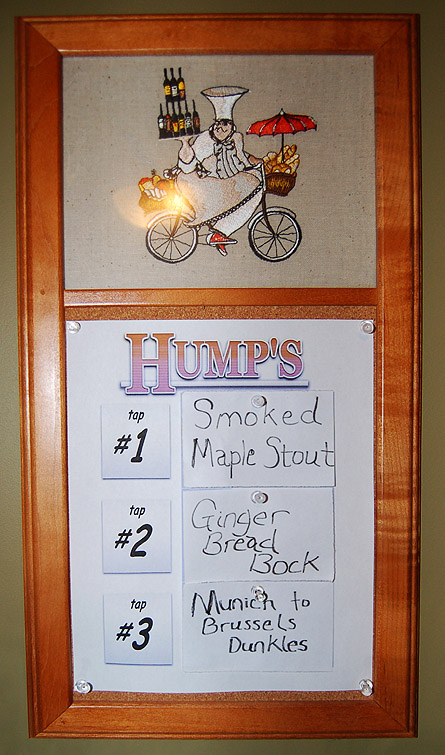 HUMP'S
tap
#1
Smoked
Maple Stout
tap
#2
Ginger
Bread
Bock
tap
#3
Munich to
Brussels
Dunkles